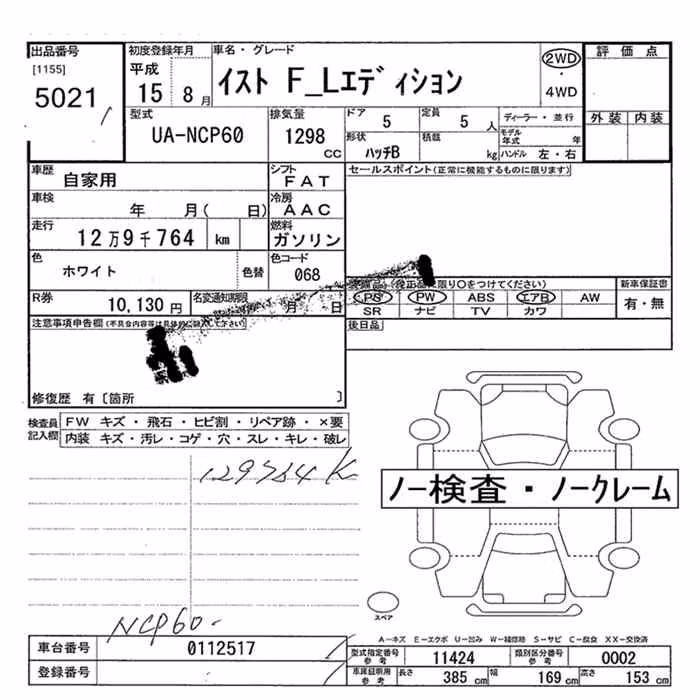 出品番号 初度登録年月 車名・グレード 2WD 評価点
[1155] 平成 イスト F_Lエディション ・
5021 15 8月 4WD
型式 排気量 ドア 5 定員 5人 ディーラー・並行 外装 内装
UA-NCP60 1298 形状 積載 モデル年式 年
CC ハッチB kg ハンドル 左・右
車歴 自家用 シフト FAT セールスポイント(正常に機能するものに限ります)
車検 年 月( 日) 冷房 AAC
走行 12万9千764 km 燃料 ガソリン
色 ホワイト 色替 色コード 068
(純正品に限り○をつけてください) 新車保証書
R券 10,130円 名変通知期限 月 日 PS PW ABS エアB AW 有・無
SR ナビ TV カワ
注意事項申告欄(不具合内容等は具体的に記入して下さい) 後日品
修復歴 有〔箇所 〕
検査員記入欄 FW キズ・飛石・ヒビ割・リペア跡・×要
内装 キズ・汚レ・コゲ・穴・スレ・キレ・破レ
129764K
ノー検査・ノークレーム
スペア
NCP60-
A-キズ E-エクボ U-凹み W-補修跡 S-サビ C-腐食 XX-交換済
車台番号 0112517 型式指定番号 参考 11424 類別区分番号 参考 0002
登録番号 車庫証明用 参考 長さ 385 cm 幅 169 cm 高さ 153 cm